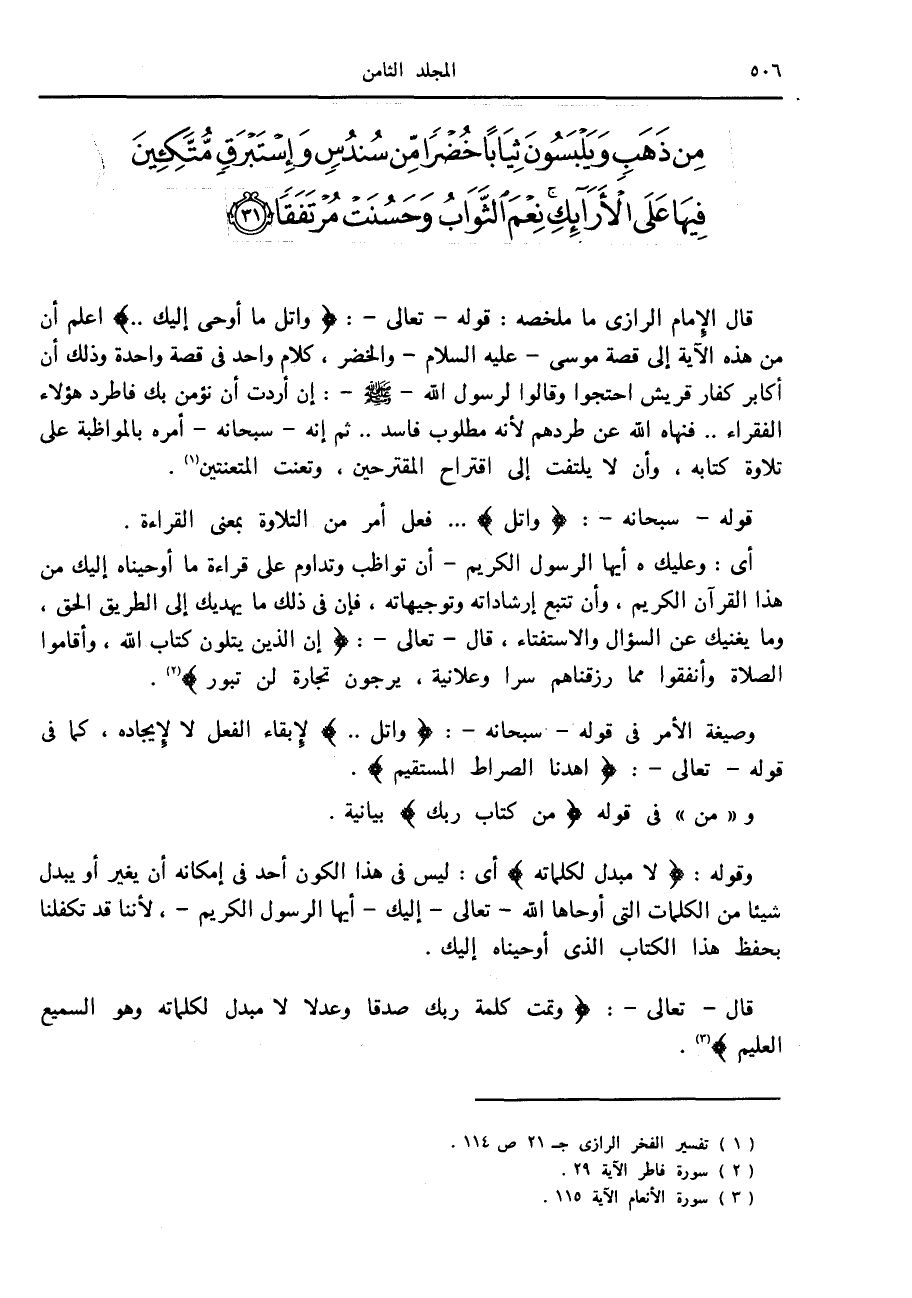 ٥٠٦ المجلد الثامن
مِن ذَهَبٍ وَيَلْبَسُونَ ثِيَابًا خُضْرًا مِّن سُندُسٍ وَإِسْتَبْرَقٍ مُّتَّكِـِٔينَ
فِيهَا عَلَى ٱلْأَرَآئِكِ ۚ نِعْمَ ٱلثَّوَابُ وَحَسُنَتْ مُرْتَفَقًا ﴿٣١﴾
قال الإمام الرازى ما ملخصه : قوله – تعالى – : ﴿ واتل ما أوحى إليك ..﴾ اعلم أن
من هذه الآية إلى قصة موسى – عليه السلام – والخضر ، كلام واحد فى قصة واحدة وذلك أن
أكابر كفار قريش احتجوا وقالوا لرسول الله – ﷺ – : إن أردت أن نؤمن بك فاطرد هؤلاء
الفقراء .. فنهاه الله عن طردهم لأنه مطلوب فاسد .. ثم إنه – سبحانه – أمره بالمواظبة على
تلاوة كتابه ، وأن لا يلتفت إلى اقتراح المقترحين ، وتعنت المتعنتين(١) .
قوله – سبحانه – : ﴿ واتل ﴾ ... فعل أمر من التلاوة بمعنى القراءة .
أى : وعليك ه أيها الرسول الكريم – أن تواظب وتداوم على قراءة ما أوحيناه إليك من
هذا القرآن الكريم ، وأن تتبع إرشاداته وتوجيهاته ، فإن فى ذلك ما يهديك إلى الطريق الحق ،
وما يغنيك عن السؤال والاستفتاء ، قال – تعالى – : ﴿ إن الذين يتلون كتاب الله ، وأقاموا
الصلاة وأنفقوا مما رزقناهم سرا وعلانية ، يرجون تجارة لن تبور ﴾(٢) .
وصيغة الأمر فى قوله – سبحانه – : ﴿ واتل .. ﴾ لإبقاء الفعل لا لإيجاده ، كما فى
قوله – تعالى – : ﴿ اهدنا الصراط المستقيم ﴾ .
و « من » فى قوله ﴿ من كتاب ربك ﴾ بيانية .
وقوله : ﴿ لا مبدل لكلماته ﴾ أى : ليس فى هذا الكون أحد فى إمكانه أن يغير أو يبدل
شيئا من الكلمات التى أوحاها الله – تعالى – إليك – أيها الرسول الكريم – ، لأننا قد تكفلنا
بحفظ هذا الكتاب الذى أوحيناه إليك .
قال – تعالى – : ﴿ وتمت كلمة ربك صدقا وعدلا لا مبدل لكلماته وهو السميع
العليم ﴾(٣) .
( ١ ) تفسير الفخر الرازى جـ ٢١ ص ١١٤ .
( ٢ ) سورة فاطر الآية ٢٩ .
( ٣ ) سورة الأنعام الآية ١١٥ .